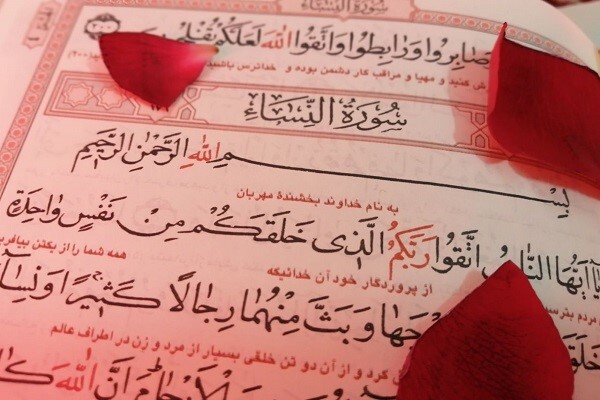 سُورَةُ النِّسَاءِ
صَابِرُوا وَرَابِطُوا وَاتَّقُوا اللهَ لَعَلَّكُمْ تُفْلِحُونَ
کنید و مهیا و مراقب کار دشمن بوده و خداترس باشید (۲۰۰)
سُورَةُ النِّسَاءِ
بِسْمِ اللهِ الرَّحْمٰنِ الرَّحِيمِ
به نام خداوند بخشندهٔ مهربان
يَا أَيُّهَا النَّاسُ اتَّقُوا رَبَّكُمُ الَّذِي خَلَقَكُمْ مِنْ نَفْسٍ وَاحِدَةٍ
مردم بترسید از پروردگار خود آن خدائیکه همه شما را از یکتن بیافرید
وَخَلَقَ وَبَثَّ مِنْهُمَا رِجَالًا كَثِيرًا وَنِسَاءً
کرد و از آن دو تن خلقی بسیار از مرد و زن در اطراف عالم
إِنَّ اللهَ